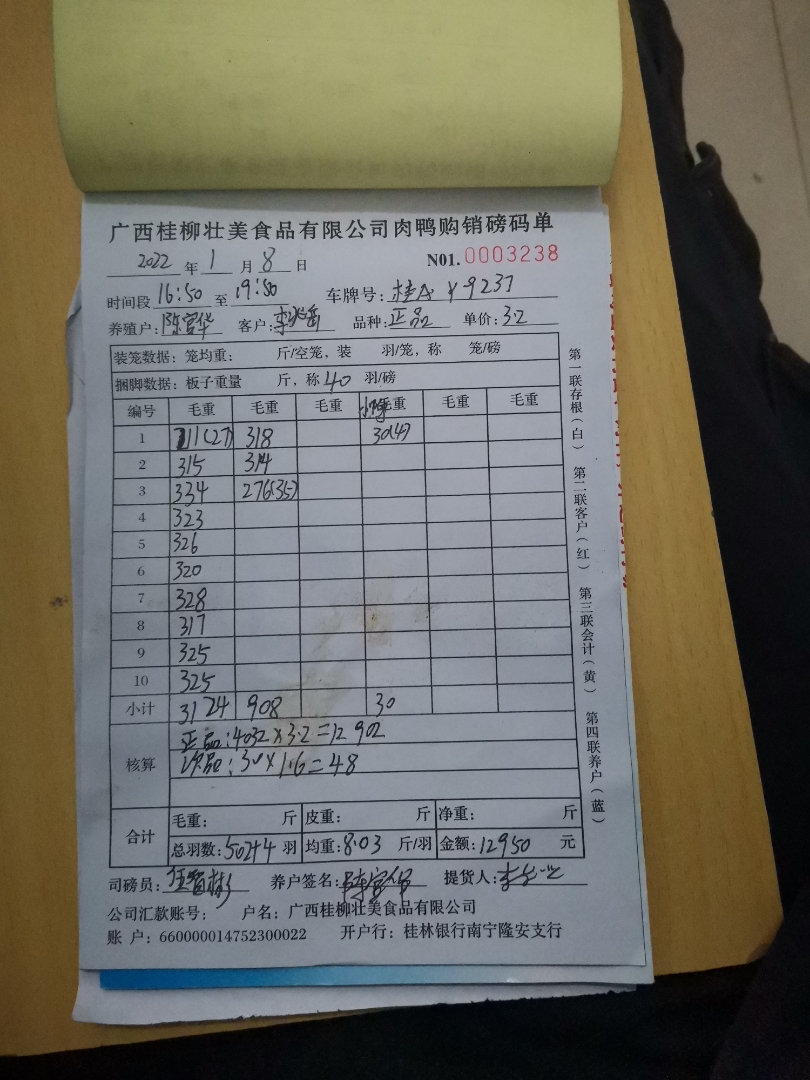 广西桂柳壮美食品有限公司肉鸭购销磅码单
2022年1月8日 N01.0003238
时间段16:50至19:50 车牌号:桂A Y9237
养殖户: 客户: 品种:正品 单价:3.2
装笼数据:笼均重: 斤/空笼,装 羽/笼,称 笼/磅
捆脚数据:板子重量 斤,称40羽/磅
编号 毛重 毛重 毛重 毛重 毛重 毛重
1 211(27) 318 30(4)
2 315 314
3 334 276(35)
4 323
5 326
6 320
7 328
8 317
9 325
10 325
小计 3124 908 30
核算
正品:4032×3.2=12902
次品:30×1.6=48
合计
毛重: 斤 皮重: 斤 净重: 斤
总羽数:502+4羽 均重:8.03斤/羽 金额:12950元
司磅员: 养户签名: 提货人:
公司汇款账号: 户名:广西桂柳壮美食品有限公司
账 户:660000014752300022 开户行:桂林银行南宁隆安支行
第一联存根(白) 第二联客户(红) 第三联会计(黄) 第四联养户(蓝)